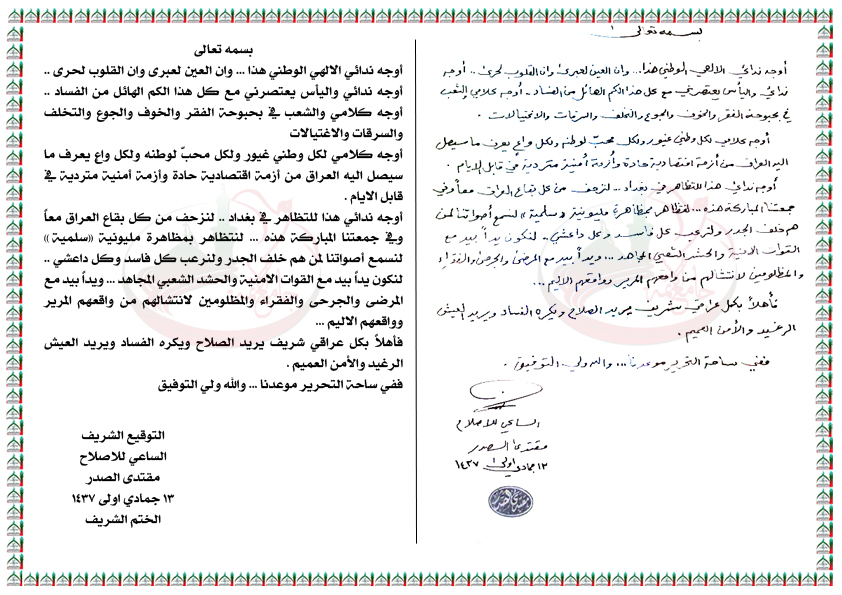 بسمه تعالى
أوجه ندائي الالهي الوطني هذا... وان العين لعبرى وان القلوب لحرى .. أوجه
ندائي واليأس يعتصرني مع كل هذا الكم الهائل من الفساد.. أوجه كلامي والشعب
في بحبوحة الفقر والخوف والجوع والتخلف والسرقات والاغتيالات .
أوجه كلامي لكل وطني غيور ولكل محبّ لوطنه ولكل واع يعرف ما سيصل
اليه العراق من أزمة اقتصادية حادة وأزمة أمنية متردية في قابل الايام .
أوجه ندائي هذا للتظاهر في بغداد .. لنزحف من كل بقاع العراق معاً وفي
جمعتنا المباركة هذه ... لنتظاهر بمظاهرة مليونية «سلمية» لنسمع أصواتنا لمن
هم خلف الجدر ولنرعب كل فاسد وكل داعشي .. لنكون يداً بيد مع
القوات الامنية والحشد الشعبي المجاهد ... ويداً بيد مع المرضى والجرحى والفقراء
والمظلومين لانتشالهم من واقعهم المرير وواقعهم الاليم ...
فأهلاً بكل عراقي شريف يريد الصلاح ويكره الفساد ويريد العيش
الرغيد والأمن العميم .
ففي ساحة التحرير موعدنا ... والله ولي التوفيق .
الساعي للاصلاح
مقتدى الصدر
١٣ جمادي اولى ١٤٣٧
بسمه تعالى
أوجه ندائي الالهي الوطني هذا ... وان العين لعبرى وان القلوب لحرى ..
أوجه ندائي واليأس يعتصرني مع كل هذا الكم الهائل من الفساد ..
أوجه كلامي والشعب في بحبوحة الفقر والخوف والجوع والتخلف
والسرقات والاغتيالات
أوجه كلامي لكل وطني غيور ولكل محبّ لوطنه ولكل واع يعرف ما
سيصل اليه العراق من أزمة اقتصادية حادة وأزمة أمنية متردية في
قابل الايام .
أوجه ندائي هذا للتظاهر في بغداد .. لنزحف من كل بقاع العراق معاً
وفي جمعتنا المباركة هذه ... لنتظاهر بمظاهرة مليونية «سلمية»
لنسمع أصواتنا لمن هم خلف الجدر ولنرعب كل فاسد وكل داعشي ..
لنكون يداً بيد مع القوات الامنية والحشد الشعبي المجاهد ... ويداً بيد مع
المرضى والجرحى والفقراء والمظلومين لانتشالهم من واقعهم المرير
وواقعهم الاليم ...
فأهلاً بكل عراقي شريف يريد الصلاح ويكره الفساد ويريد العيش
الرغيد والأمن العميم .
ففي ساحة التحرير موعدنا ... والله ولي التوفيق
التوقيع الشريف
الساعي للاصلاح
مقتدى الصدر
١٣ جمادي اولى ١٤٣٧
الختم الشريف